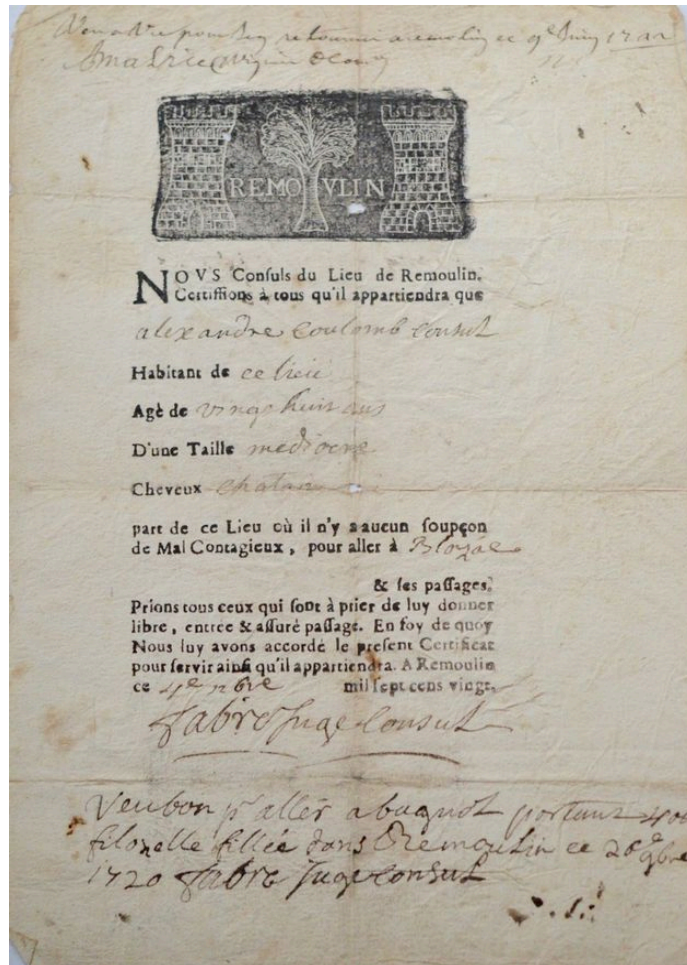 REMOULIN
NOVS Conſuls du Lieu de Remoulin.
Certiffions à tous qu'il appartiendra que
alexandre coulomb Consul
Habitant de ce lieu
Agè de vingt huit ans
D'une Taille mediocre
Cheveux chatan
part de ce Lieu où il n'y a aucun ſoupçon
de Mal Contagieux, pour aller à
& ſes paſſages.
Prions tous ceux qui ſont à prier de luy donner
libre, entrée & aſſuré paſſage. En foy de quoy
Nous luy avons accordé le preſent Certificat
pour ſervir ainſi qu'il appartiendra. A Remoulin
ce mil ſept cens vingt.
fabre Juge Consul
Veu bon pr aller a portant 400
filozelle fillée dans Remoulin ce
1720 fabre Juge Consul